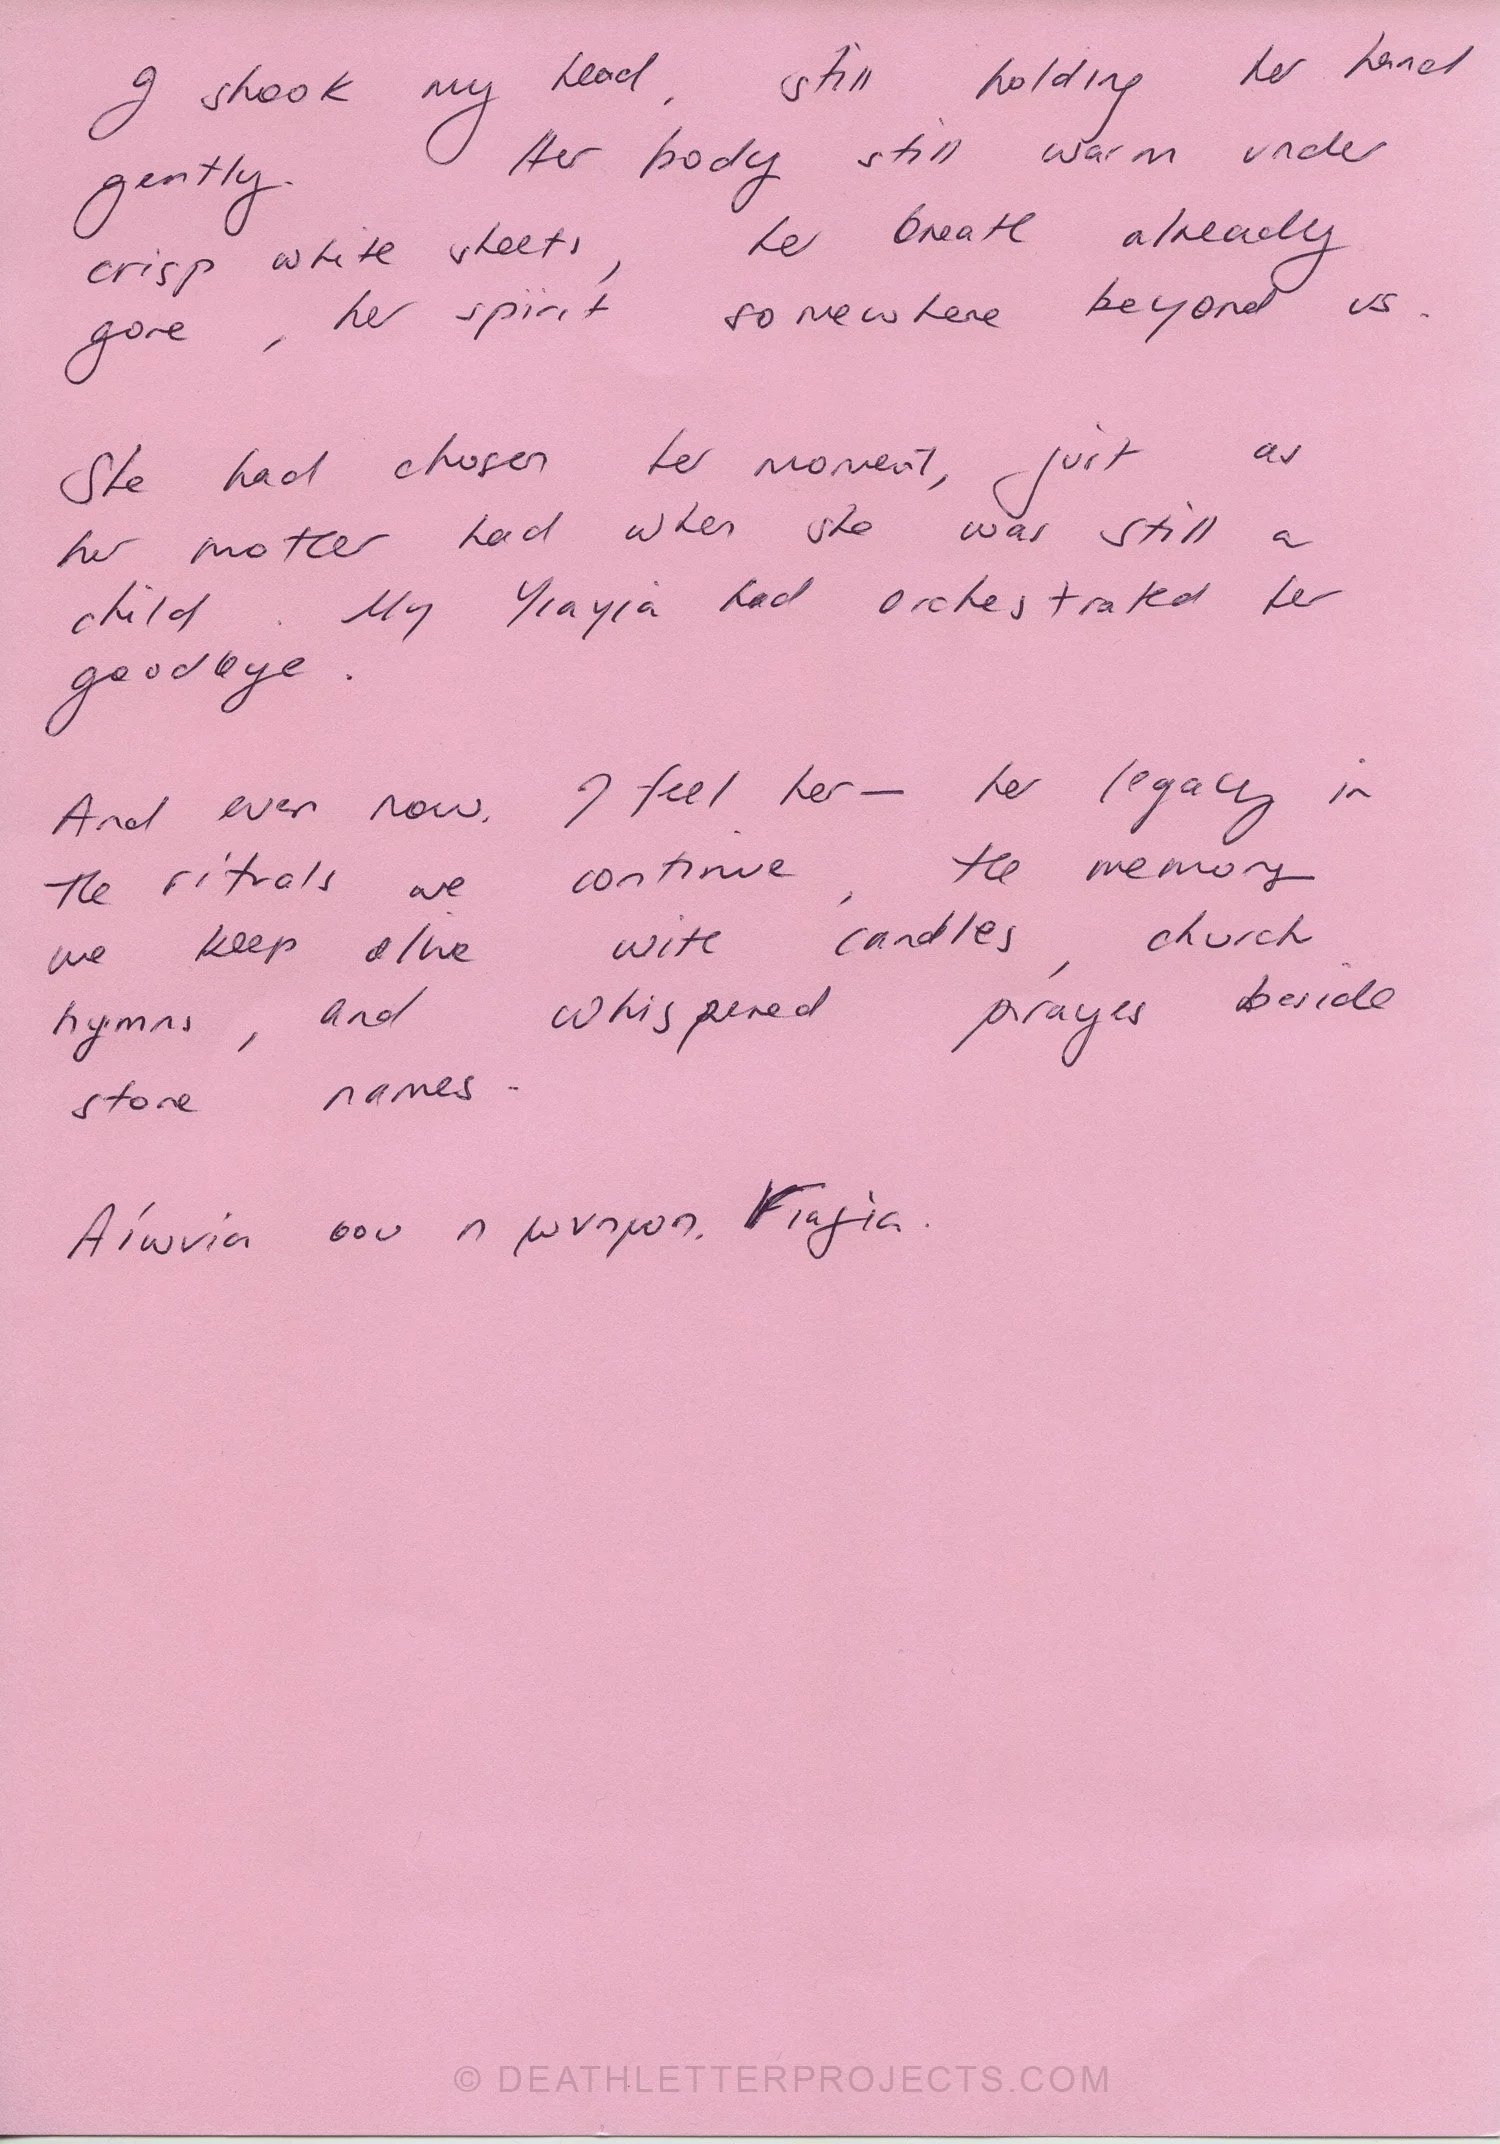 I shook my head, still holding her hand
gently. Her body still warm under
crisp white sheets, her breath already
gone, her spirit somewhere beyond us.
She had chosen her moment, just as
her mother had when she was still a
child. My Yiayia had orchestrated her
goodbye.
And even now, I feel her — her legacy in
the rituals we continue, the memory
we keep alive with candles, church
hymns, and whispered prayes beside
stone names.
Αίωνία σου η μνημη. Γιαγία.
© DEATHLETTERPROJECTS.COM